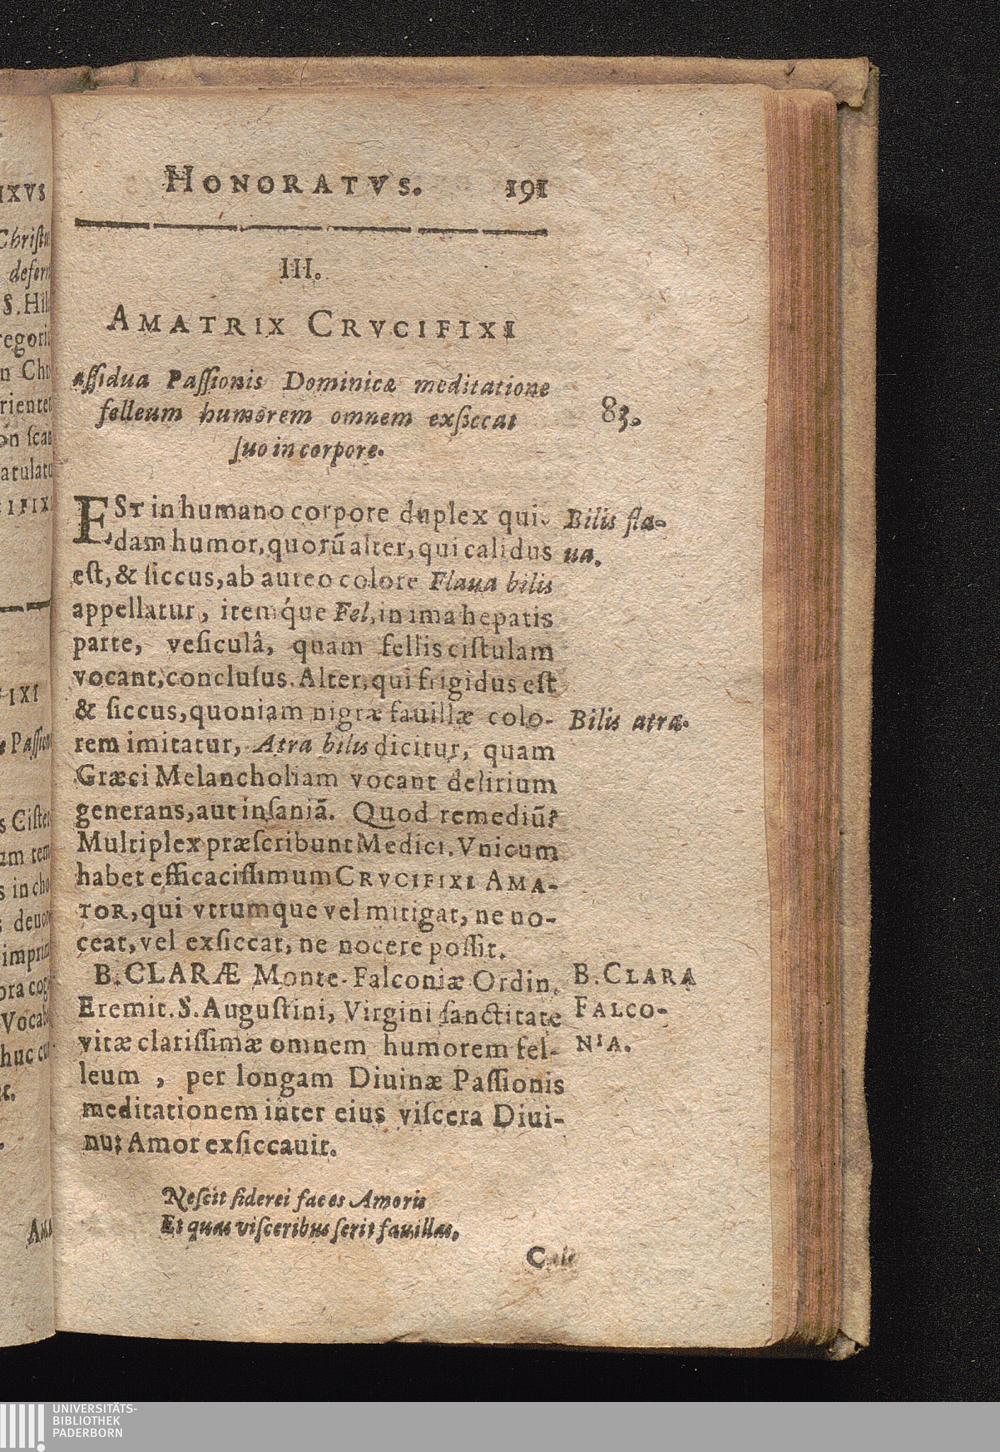 HONORATVS. 191
III.
AMATRIX CRVCIFIXI
aſſidua Paſſionis Dominicæ meditatione
felleum humorem omnem exſiccat
ſuo in corpore.
83.
ESt in humano corpore duplex qui-
dam humor, quorũ alter, qui calidus
eſt, & ſiccus, ab aureo colore Flaua bilis
appellatur, itemq́ue Fel, in ima hepatis
parte, veſiculâ, quam fellis ciſtulam
vocant, concluſus. Alter, qui frigidus eſt
& ſiccus, quoniam nigræ fauillæ colo-
rem imitatur, Atra bilis dicitur, quam
Græci Melancholiam vocant delirium
generans, aut inſaniã. Quod remediũ?
Multiplex præſcribunt Medici. Vnicum
habet efficaciſſimum CRVCIFIXI AMA-
TOR, qui vtrumque vel mitigat, ne no-
ceat, vel exſiccat, ne nocere poſſit.
B. CLARÆ Monte-Falconiæ Ordin.
Eremit. S. Auguſtini, Virgini ſanctitate
vitæ clariſſimæ omnem humorem fel-
leum , per longam Diuinæ Paſſionis
meditationem inter eius viſcera Diui-
nus Amor exſiccauit.
Neſcit ſiderei faces Amoris
Et quas viſceribus ſerit fauillas.
Bilis fla-
ua.
Bilis atra.
B. CLARA
FALCO-
NIA.
IXVS
S. Hil
UNIVERSITÄTS-
BIBLIOTHEK
PADERBORN